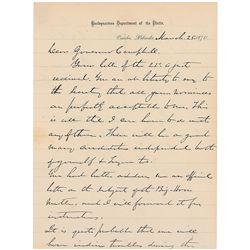 Headquarters Department of the Platte,
Omaha, Nebraska March 25 1870
Dear Governor Campbell
Your letter of the 22d is just
received. You are at liberty to say to
the meeting that all your nominees
are perfectly acceptable to me. This
is all that I can have to do with
any of them. There will be a good
many candidates independent both
of yourself &
You had better address me an official
letter on the subject of Big Horn
matter, and I will forward it for
instructions.
It is quite probable that we will
have Indian troubles during the